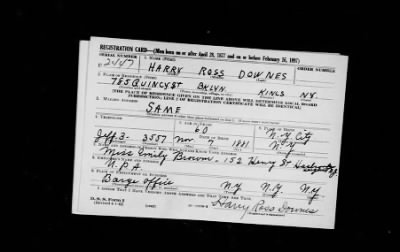 REGISTRATION CARD—(Men born on or after April 28, 1877 and on or before February 16, 1897)
SERIAL NUMBER 1. NAME (Print)
U 2447 HARRY ROSS DOWNES
(First) (Middle) (Last)
2. PLACE OF RESIDENCE (Print)
785 QUINCY ST BKLYN KINGS NY.
[THE PLACE OF RESIDENCE GIVEN ON THE LINE ABOVE WILL DETERMINE LOCAL BOARD
JURISDICTION; LINE 2 OF REGISTRATION CERTIFICATE WILL BE IDENTICAL]
3. MAILING ADDRESS
SAME
4. TELEPHONE 5. AGE IN YEARS 6. PLACE OF BIRTH
60 N.Y. City
DATE OF BIRTH
Jeff. 3- 3557 Nov. 7 1881 N.Y
7. NAME AND ADDRESS OF PERSON WHO WILL ALWAYS KNOW YOUR ADDRESS
Miss Emily Brown - 152 Henry St
8. EMPLOYER'S NAME AND ADDRESS
W.P.A.
9. PLACE OF EMPLOYMENT OR BUSINESS
Barge Office N.Y. N.Y. N.Y
I AFFIRM THAT I HAVE VERIFIED ABOVE ANSWERS AND THAT THEY ARE TRUE.
D. S. S. Form 1
Harry Ross Downes